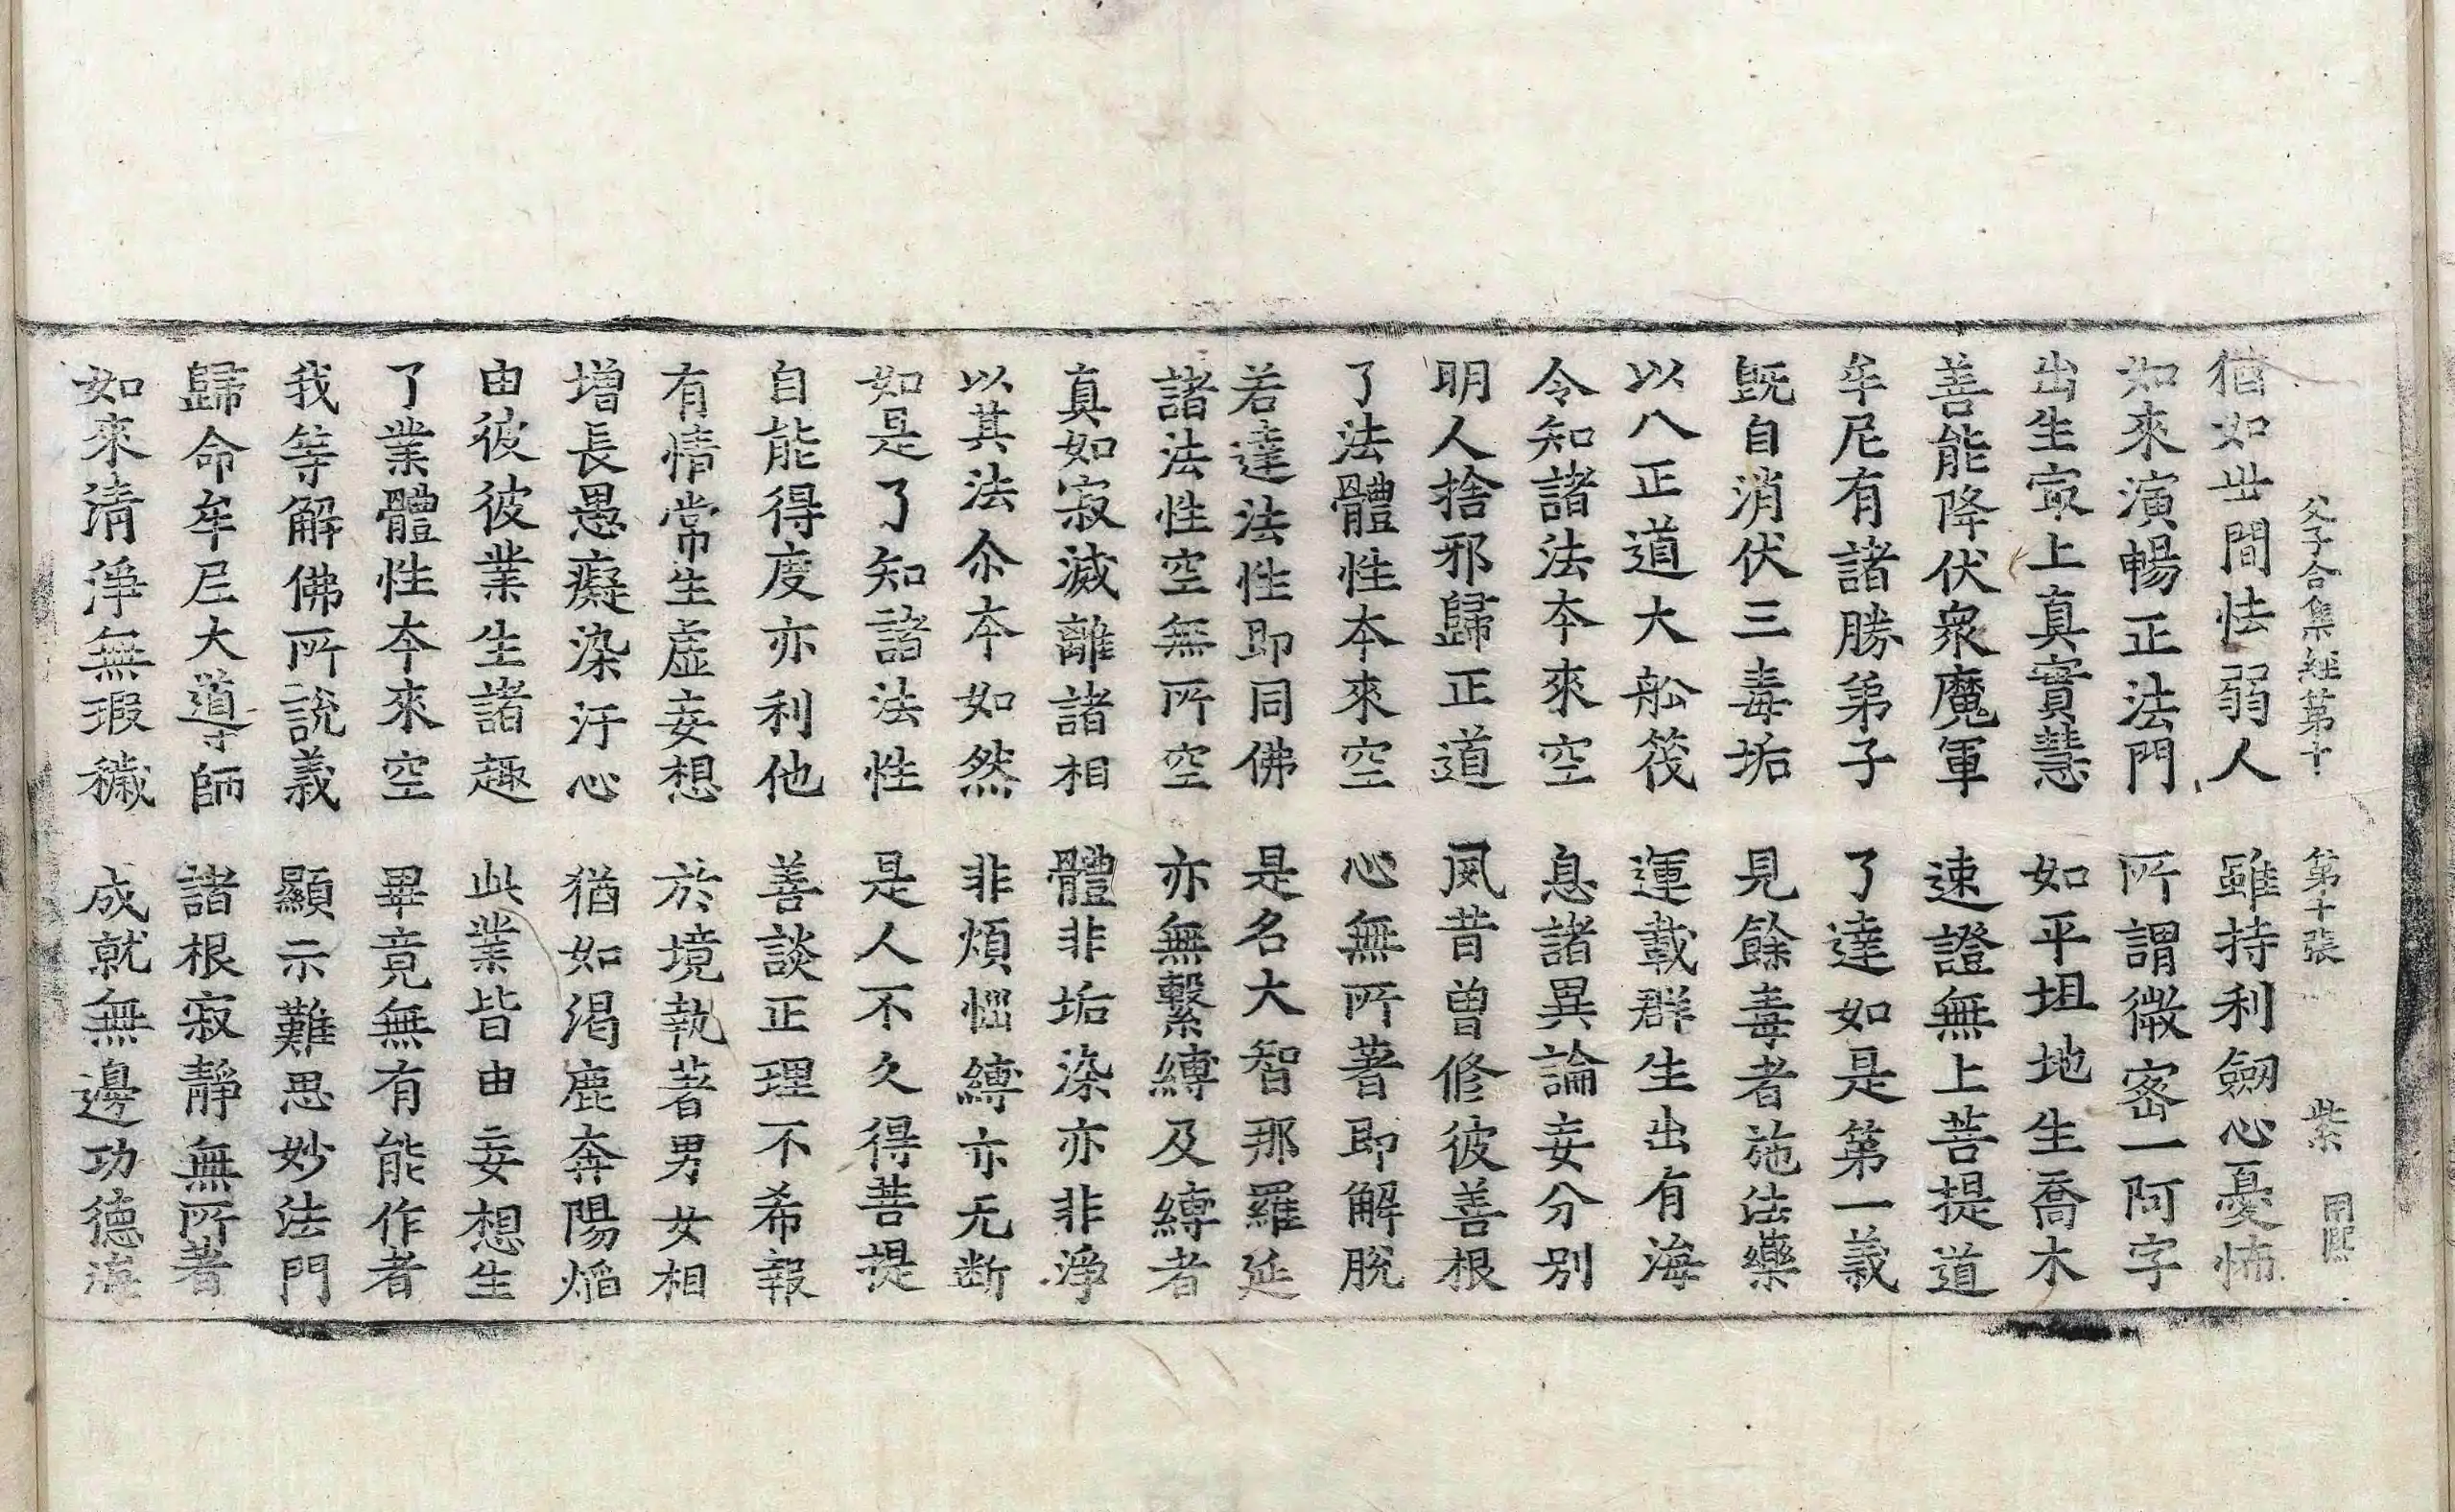 父子合集經第十 第十張 紫
猶如世間怯弱人 雖持利劒心憂怖
如來演暢正法門 所謂微宻一阿字
出生㝡上真實慧 如平坦地生喬木
善能降伏衆魔軍 速證無上菩提道
牟尼有諸勝弟子 了達如是第一義
既自消伏三毒垢 見餘毒者施法藥
以八正道大舩筏 運載群生出有海
令知諸法本來空 息諸異論妄分別
明人捨邪歸正道 夙昔曾修彼善根
了法體性本來空 心無所著即解脫
若達法性即同佛 是名大智那羅延
諸法性空無所空 亦無繫縛及縛者
真如寂滅離諸相 體非垢染亦非淨
以其法尒本如然 非煩惱縛亦无断
如是了知諸法性 是人不久得菩提
自能得度亦利他 善談正理不希報
有情常生虛妄想 於境執著男女相
增長愚癡染汙心 猶如渴鹿奔陽焰
由彼彼業生諸趣 此業皆由妄想生
了業體性本來空 畢竟無有能作者
我等解佛所說義 顯示難思妙法門
歸命牟尼大導師 諸根寂靜無所著
如來清淨無瑕穢 成就無邊功德海